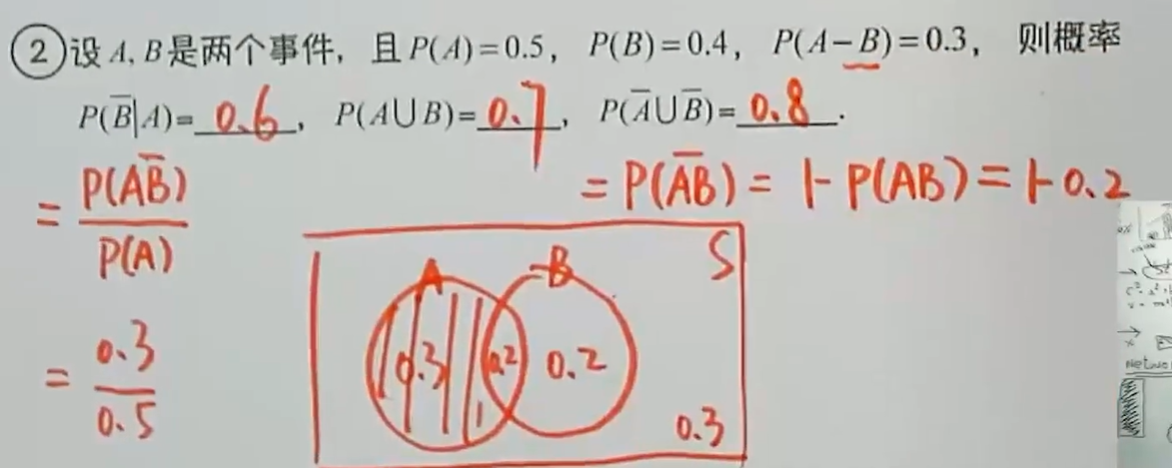 ②设 A, B是两个事件，且 P(A)=0.5，P(B)=0.4，P(A−B)=0.3，则概率
P(B̅|A)= 0.6，P(A∪B)= 0.7，P(A̅∪B̅)= 0.8.
= P(AB̅) / P(A)
= P(A̅B̅) = 1- P(AB) = 1-0.2
A B S
0.3 0.2 0.2
= 0.3 / 0.5
0.3